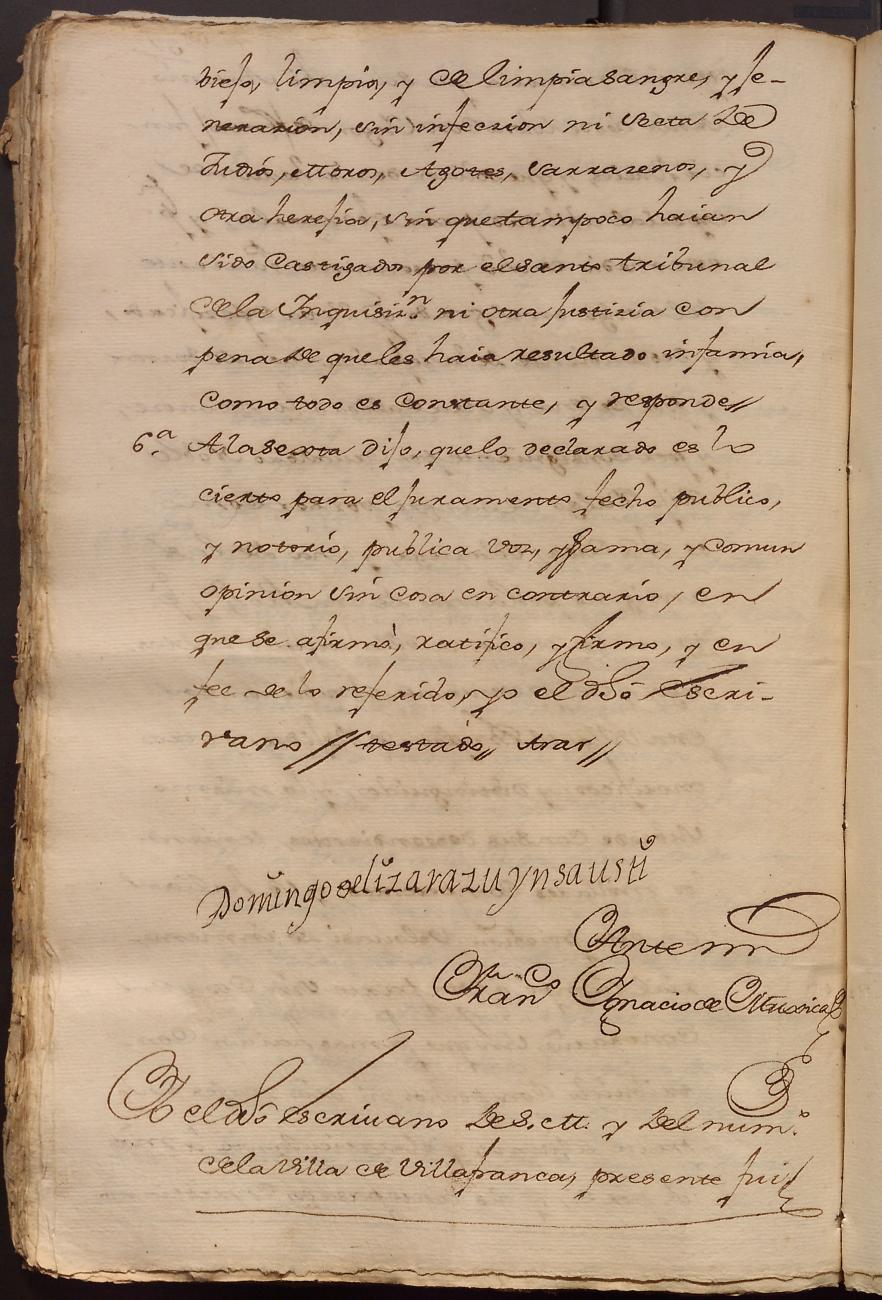 biejos, limpios, y de limpia sangre, y je-
nerazion, sin infeczion ni Secta de
Judios, Moros, Agotes, Sarrazenos, y
otra heresia, sin que tampoco haian
sido Castigados por el santo tribunal
de la Inquisizn. ni otra Justizia con
pena de que les haia resultado infamia,
Como todo es Constante, y responde //
6a. A la sexta dijo, que lo declarado es lo
cierto para el juramento fecho publico,
y notorio, publica voz, y fama, y comun
opinion sin cosa en contrario, en
que se afirmó, ratifico, y firmo, y en
fee de lo referido, yo el dho Escri-
vano // testado, trar //
Domingo de lizarazu ynsausti
Ante mi
Franco Ignacio de Muxica
Yo el dho escriuano de S. M. y del numo.
de la Villa de Villafranca, presente fui